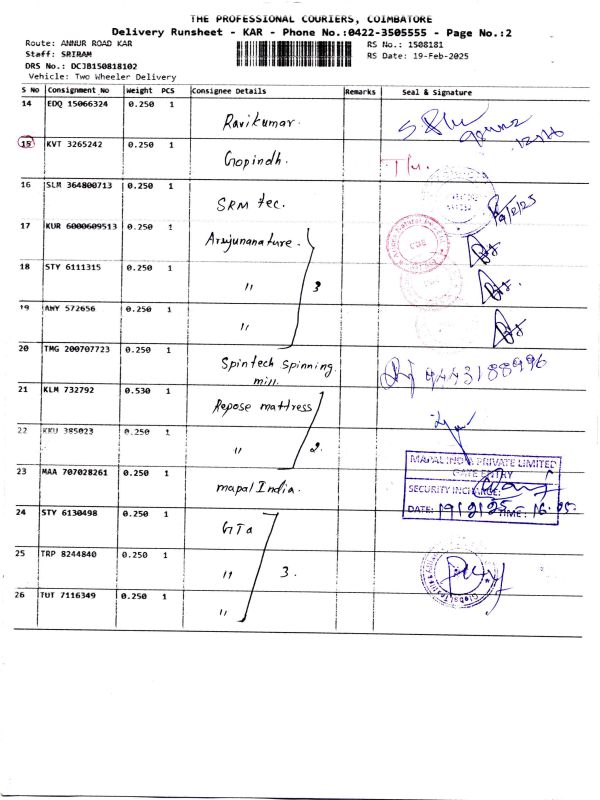 THE PROFESSIONAL COURIERS, COIMBATORE
Delivery Runsheet - KAR - Phone No.:0422-3505555 - Page No.:2
Route: ANNUR ROAD KAR
RS No.: 1508181
Staff: SRIRAM
RS Date: 19-Feb-2025
DRS No.: DCJB150818102
Vehicle: Two Wheeler Delivery
S No Consignment No Weight PCS Consignee Details Remarks Seal & Signature
14 EDQ 15066324 0.250 1 Ravikumar.
15 KVT 3265242 0.250 1 Gopindh.
16 SLM 364800713 0.250 1 SRM tec. 19/2/25
17 KUR 6000609513 0.250 1 Arujunanature.
18 STY 6111315 0.250 1 " 3
19 AWY 572656 0.250 1 "
20 TMG 200707723 0.250 1 Spintech Spinning mill. 9443188996
21 KLM 732792 0.530 1 Repose mattress
22 KKU 385023 0.250 1 " 2.
23 MAA 707028261 0.250 1 mapal India.
MAPAL INDIA PRIVATE LIMITED
GATE ENTRY
SECURITY INCHARGE:
DATE: 19/2/25 TIME: 16.05
24 STY 6130498 0.250 1 GTa
25 TRP 8244840 0.250 1 " 3.
26 TUT 7116349 0.250 1 "